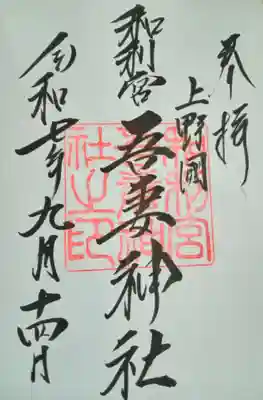 奉拝
上野國
和利宮
吾妻神社
令和七年九月十四日